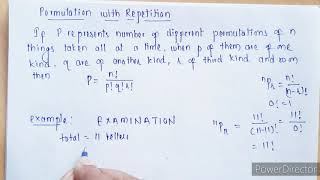 Permutation with Repetition
If P represents number of different permutations of n
things taken all at a time, when p of them are of one
kind, q are of another kind, r of third kind and so on
then
P = n! / p! q! r!
ⁿPᵣ = n! / (n-r)!
0! = 1
Example: EXAMINATION
total = 11 letters
¹¹Pₙ = 11! / (11-11)! = 11! / 0!
= 11!
PowerDirector